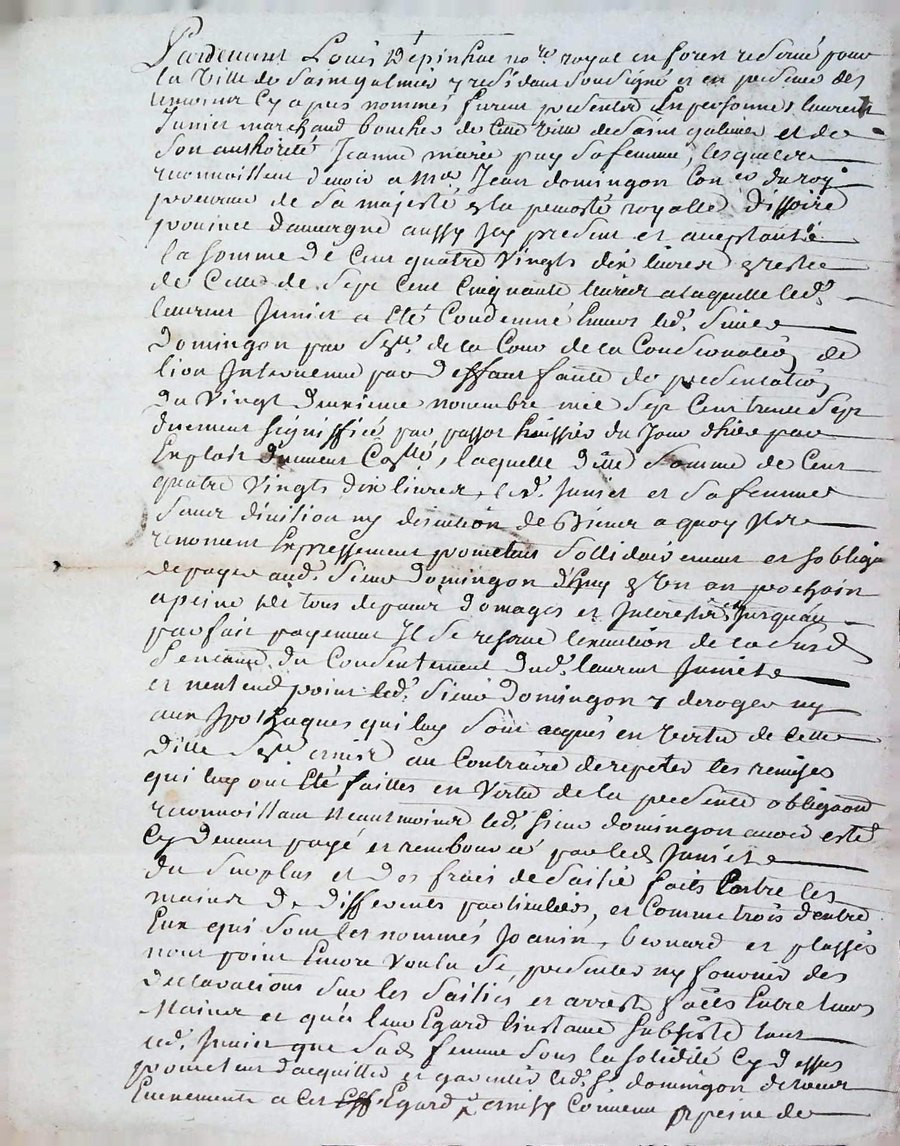 Pardevant Louis Depinhac no.re royal en forest reservé pour
la ville de Saint galmier y residant sousigné et en presence des
temoins cy apres nommés furent presents En personnes laurent
Junier marchand boucher de cette ville de Saint galmier et de
Son authorité Jeanne marie puy Sa femme, lesquels
reconnoissent devoir a Me Jean domingon Con.er du roy
procureur de Sa majesté En la prevosté royalle d'issoire
province dauvergne aussy icy present et acceptant
la somme de Cent quatre vingts dix livres restee
de Celle de Sept Cent Cinquante livres a laquelle led.
laurent Junier a eté Condemné Envers led. Sieur
Domingon par de la Cour de la Conservation de
lion Intervenue par deffaut faute de presentation
du vingt deuxieme novembre mil Sept Cent trente Sept
duement Signiffiée par passot huissier du Jour dhier par
Exploit duement Collé, laquelle ditte Somme de Cent
quatre vingts dix livres, led. Junier et Sa femme
Sans division ny discution de Biens a quoy Ils
renoncent Expressement prometent Sollidairement et Soblige
de payer aud. Sieur Domingon d'huy En un an prochain
a peine de tous depens domages et Interests Jusquau
parfait payement Il Se reserve lexecution de la Susd.
Sentence du Consentement dud. laurent Junier
et nentend point led. Sieur Domingon y deroger ny
aux Ipothaques qui luy Sont acquis en vertu de cette
ditte au Contraire de repeter les remises
qui luy ont Eté faittes en vertu de la presente obligaon
reconnoissant Neantmoins led. Sieur domingon avoir esté
Cy devant payé et remboursé par led. Junier
du Surplus et des frais de Saisie faits Entre les
mains de differents particuliers, et Comme trois dentre
Eux qui Sont les nommés Joanin, bernard et plassés
nont point Encore voulu Se presenter ny fournir des
declarations Sur les Saisies et arrests faits Entre leurs
Mains et qua leur Egard linstance Subsiste tant
led. Junier que Sad. femme Sous la Solidité Cy dessus
promettent dacquitter et garentir led. Sr. domingon de tous
Evenements a Cet Egard Convenu a peine de